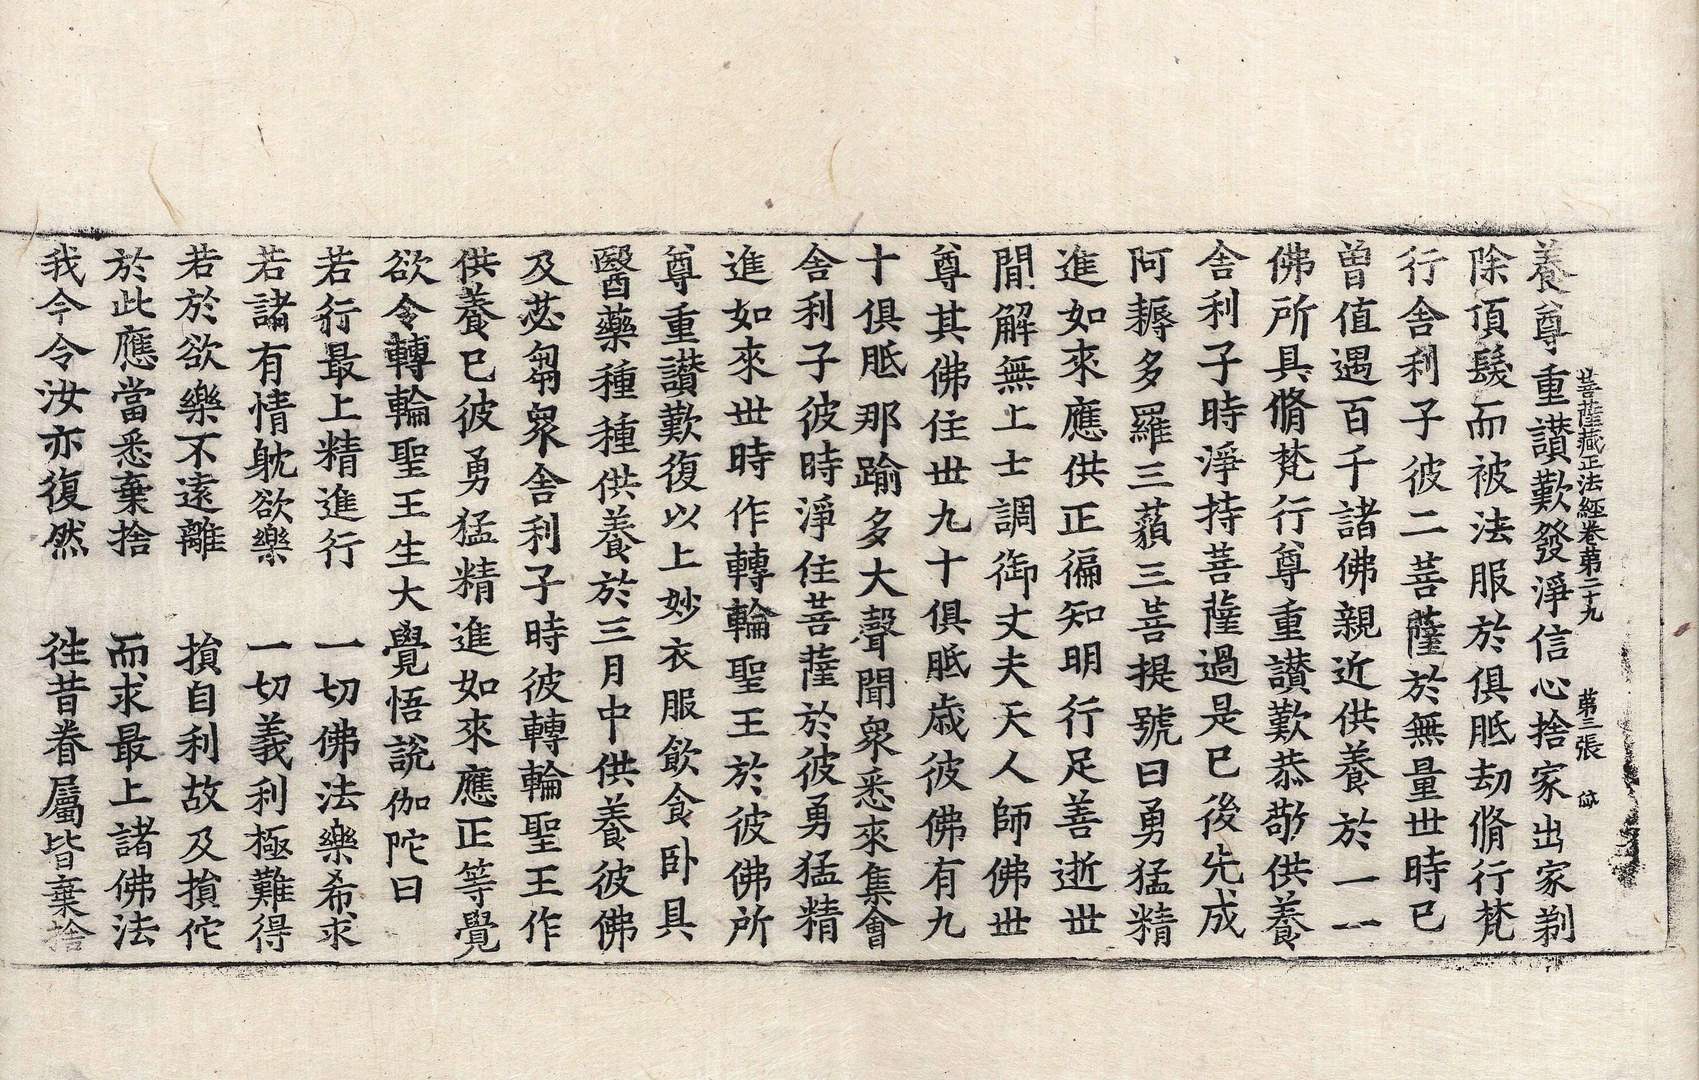 菩薩藏正法經卷第二十九　第三張
養尊重讃歎發淨信心捨家出家剃
除頂髮而被法服於俱胝劫脩行梵
行舍利子彼二菩薩於無量世時已
曽值遇百千諸佛親近供養於一一
佛所具脩梵行尊重讃歎恭敬供養
舍利子時淨持菩薩過是已後先成
阿耨多羅三藐三菩提號曰勇猛精
進如來應供正徧知明行足善逝世
閒解無上士調御丈夫天人師佛世
尊其佛住世九十俱胝歳彼佛有九
十俱胝那踰多大聲聞衆悉來集會
舍利子彼時淨住菩薩於彼勇猛精
進如來世時作轉輪聖王於彼佛所
尊重讃歎復以上妙衣服飲食卧具
醫藥種種供養於三月中供養彼佛
及苾芻衆舍利子時彼轉輪聖王作
供養已彼勇猛精進如來應正等覺
欲令轉輪聖王生大覺悟說伽陀曰
若行最上精進行　一切佛法樂希求
若諸有情躭欲樂　一切義利極難得
若於欲樂不遠離　損自利故及損佗
於此應當悉棄捨　而求最上諸佛法
我今令汝亦復然　徃昔眷屬皆棄捨